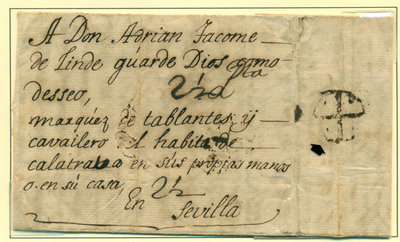 A Don Adrian Jacome
de Linde guarde Dios como
desseo,
2½
marquéz de tablantes, y
cavallero del habito de
calatraba en sus propias manos
o en su casa,
2½
En Sevilla